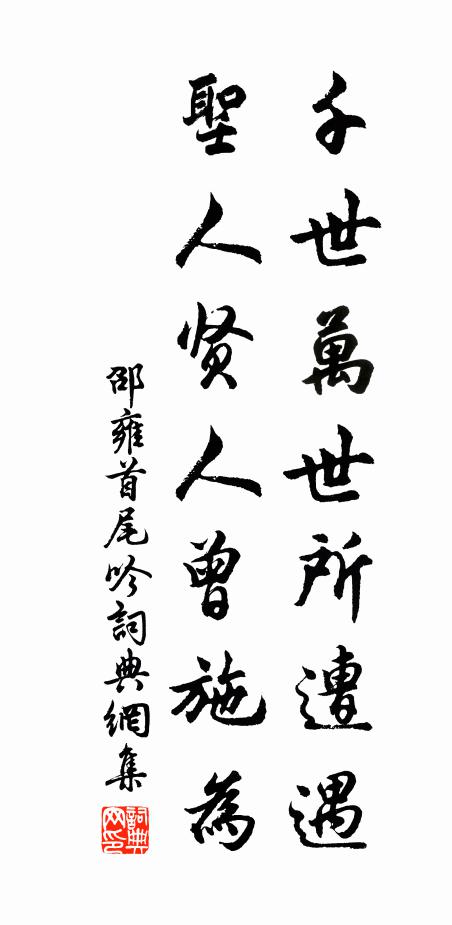 千世萬世所遭遇
聖人贤人曾施為
邵雍首尾吟詞典網集
詞典网印